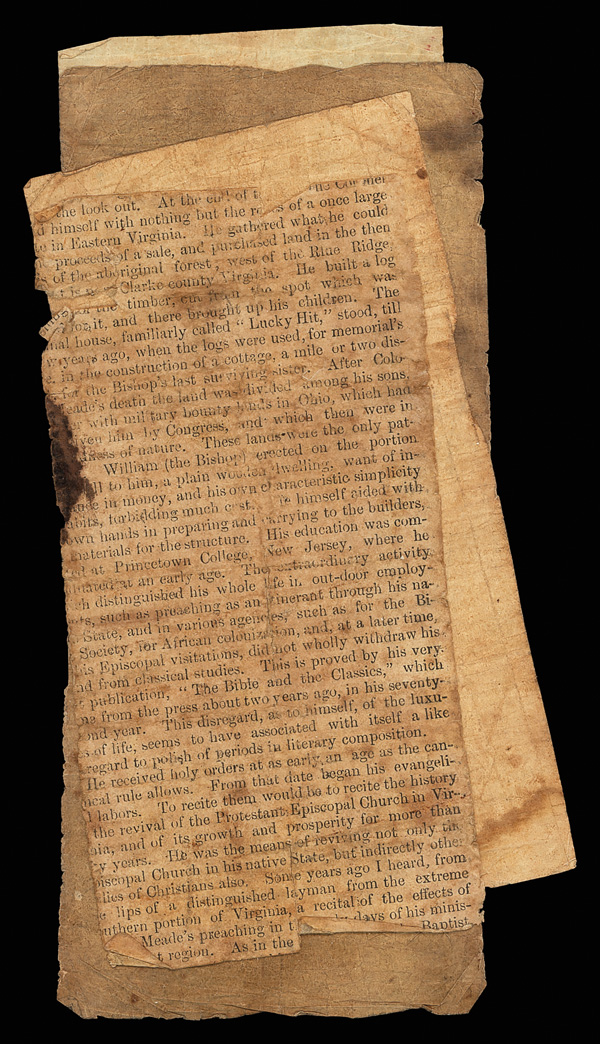 the look out. At the end of t The Colonel
d himself with nothing but the re s of a once large
in Eastern Virginia. He gathered what he could
proceeds of a sale, and purchased land in the then
s of the aboriginal forest, west of the Blue Ridge,
Clarke county Virginia. He built a log
of the timber, cut from the spot which was
for it, and there brought up his children. The
nal house, familiarly called "Lucky Hit," stood, till
years ago, when the logs were used, for memorial's
e, in the construction of a cottage, a mile or two dis-
for the Bishop's last surviving sister. After Colo-
Meade's death the land was divided among his sons,
with military bounty lands in Ohio, which had
ven him by Congress, and which then were in
ness of nature. These lands were the only pat-
William (the Bishop) erected on the portion
ll to him, a plain wooden dwelling, want of in-
in money, and his own characteristic simplicity
bits, forbidding much cost. He himself aided with
own hands in preparing and carrying to the builders,
materials for the structure. His education was com-
ed at Princetown College, New Jersey, where he
uated at an early age. The extraordinary activity
h distinguished his whole life in out-door employ-
ts, such as preaching as an itinerant through his na-
State, and in various agencies, such as for the Bi-
Society, for African colonization, and, at a later time,
is Episcopal visitations, did not wholly withdraw his
nd from classical studies. This is proved by his very
publication, "The Bible and the Classics," which
ne from the press about two years ago, in his seventy-
ond year. This disregard, as to himself, of the luxu-
s of life, seems to have associated with itself a like
regard to polish of periods in literary composition.
He received holy orders at as early an age as the can-
nical rule allows. From that date began his evangeli-
l labors. To recite them would be to recite the history
the revival of the Protestant Episcopal Church in Vir-
nia, and of its growth and prosperity for more than
y years. He was the means of reviving not only the
piscopal Church in his native State, but indirectly other
dies of Christians also. Some years ago I heard, from
e lips of a distinguished layman from the extreme
uthern portion of Virginia, a recital of the effects of
Meade's preaching in t days of his minis-
t region. As in the Baptist